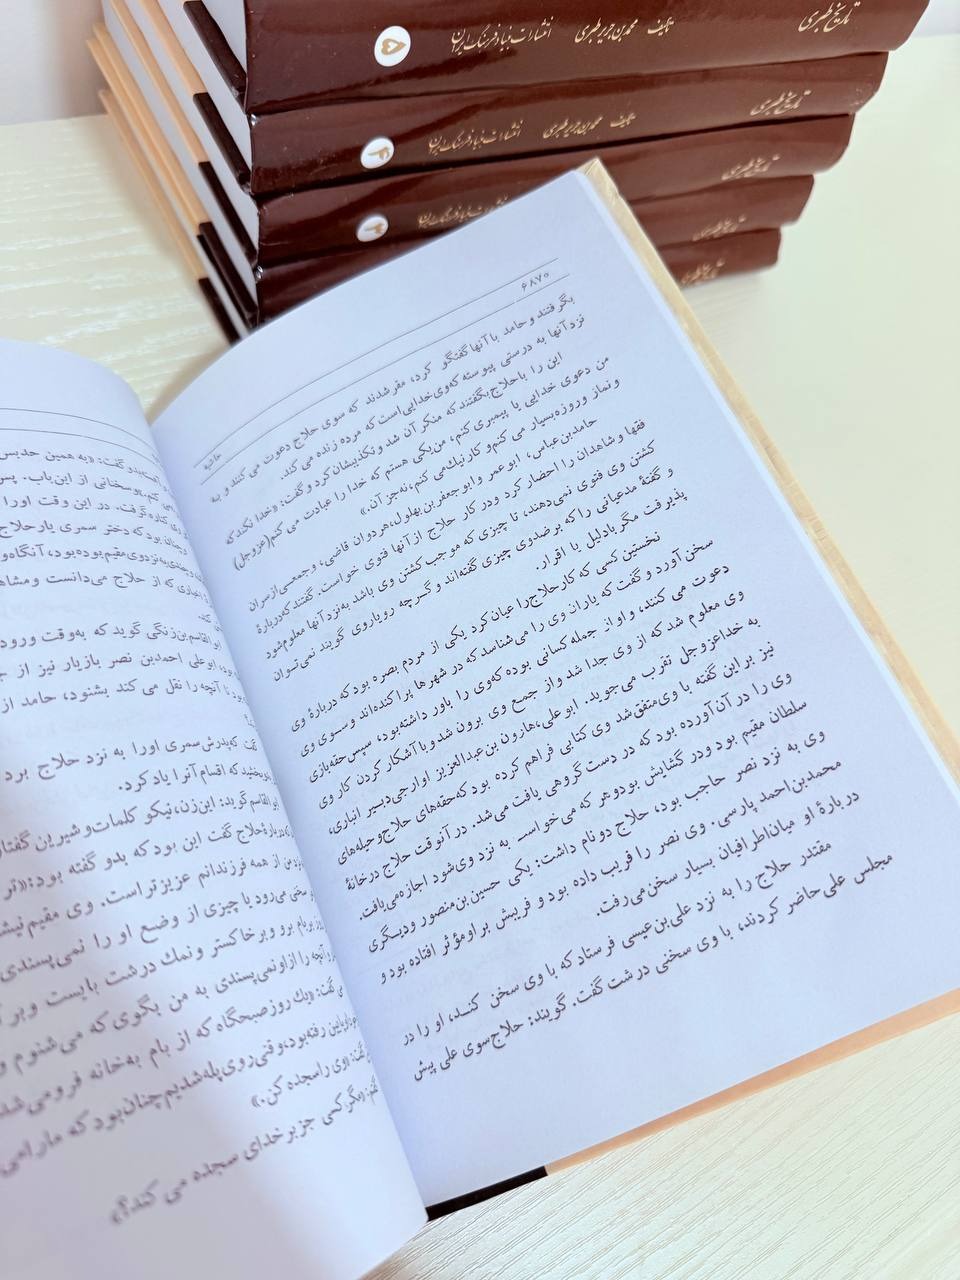 تاریخ طبری تألیف محمد بن جریر طبری انتشارات بنیاد فرهنگ ایران ۵
تاریخ طبری تألیف محمد بن جریر طبری انتشارات بنیاد فرهنگ ایران ۴
تاریخ طبری انتشارات بنیاد فرهنگ ایران ۳
تاریخ طبری
تاریخ طبری
۶۸۷۰
حاشیه
بگرفتند و حامد با آنها گفتگو کرد، مقر شدند که سوی حلاج دعوت می کنند و به
نزد آنها به درستی پیوسته که وی خدایی است که مرده زنده می کند.
این را با حلاج بگفتند که منکر آن شد و تکذیبشان کرد و گفت: «خدا نکند که
من دعوی خدایی یا پیمبری کنم، من یکی هستم که خدا را عبادت می کنم (عزوجل)
و نماز و روزه بسیار می کنم و کار نیک می کنم، نه جز آن.»
حامد بن عباس، ابوعمر و ابوجعفر بن بهلول، هردوان قاضی، و جمعی از سران
فقها و شاهدان را احضار کرد و در کار حلاج از آنها فتوی خواست. گفتند که درباره
کشتن وی فتوی نمی دهند، تا چیزی که موجب کشتن وی باشد به نزد آنها معلوم شود
و گفتهٔ مدعیانی را که بر ضد وی چیزی گفته اند و گرچه رویاروی گویند نمی توان
پذیرفت مگر با دلیل یا اقرار.
نخستین کسی که کار حلاج را عیان کرد یکی از مردم بصره بود که دربارهٔ وی
سخن آورد و گفت که یاران وی را می شناسد که در شهرها پراکنده اند و سوی وی
دعوت می کنند، و او از جمله کسانی بوده که وی را باور داشته بود، سپس حقه بازی
وی معلوم شد که از وی جدا شد و از جمع وی برون شد و با آشکار کردن کار وی
به خدا عزوجل تقرب می جوید. ابوعلی، هارون بن عبدالعزیز اوارجی دبیر انباری،
نیز بر این گفته با وی متفق شد وی کتابی فراهم کرده بود که حقه های حلاج و حیله های
وی را در آن آورده بود که در دست گروهی یافت می شد. در آنوقت حلاج در خانهٔ
سلطان مقیم بود و در گشایش بود و هر که می خواست به نزد وی شود اجازه می یافت.
وی به نزد نصر حاجب بود، حلاج دو نام داشت: یکی حسین بن منصور و دیگری
محمد بن احمد پارسی. وی نصر را فریب داده بود و فریبش بر او مؤثر افتاده بود و
دربارهٔ او میان اطرافیان بسیار سخن می رفت.
مقتدر حلاج را به نزد علی بن عیسی فرستاد که با وی سخن کند، او را در
مجلس علی حاضر کردند، با وی سخنی درشت گفت. گویند: حلاج سوی علی پیش
بدو گفت: «به همین حدیس
وسخنانی از این باب. پس
وی کناره گرفت. در این وقت او را
و چنان بود که دختر سمری یار حلاج
و چندی به نزد وی مقیم بوده بود، آنگاه
اخباری که از حلاج می دانست و مشاه
کند.
ابوالقاسم بن زنگی گوید که به وقت ورود
بود، ابوعلی احمد بن نصر بازیار نیز از ج
تا آنچه را نقل می کند بشنود، حامد از
گفت که پدرش سمری او را به نزد حلاج برد
بخشید که اقسام آنرا یاد کرد.
ابوالقاسم گوید: این زن، نیکو کلمات و شیرین گفتار
که دربارهٔ حلاج گفت این بود که بدو گفته بود: «تر
من از همه فرزندانم عزیزتر است. وی مقیم نیش
سخنی می رود یا چیزی از وضع او را نمی پسندی
بر بام برو و بر خاکستر و نمک درشت بایست و بر
آنچه را از او نمی پسندی به من بگوی که می شنوم و
گفت: «یک روز صبحگاه که از بام به خانه فرو می شد
پایین رفته بود، وقتی روی پله شدیم چنان بود که ما را می
گفت: «وی را سجده کن.»
گفتم: «مگر کسی جز بر خدای سجده می کند؟»